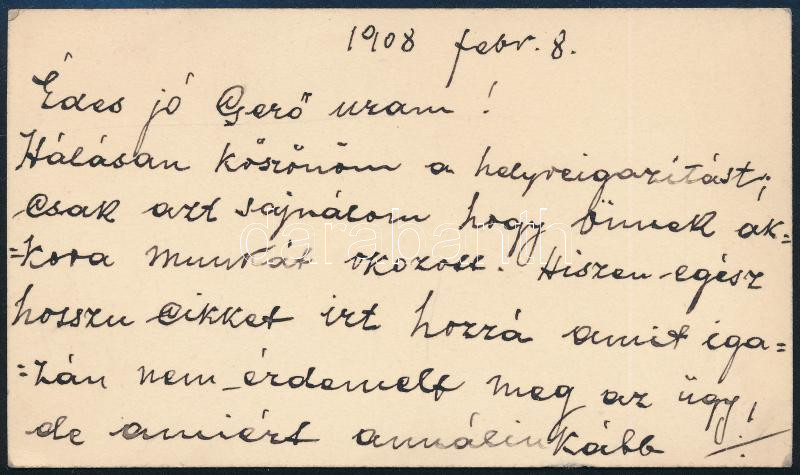 1908 febr. 8.
Édes jó Gerő uram!
Hálásan köszönöm a helyreigazítást;
csak azt sajnálom hogy önnek ak=
=kora munkát okozott. Hiszen egész
hosszu cikket irt hozzá amit iga=
=zán nem érdemelt meg az ügy,
de amiért annálinkább
darabanth